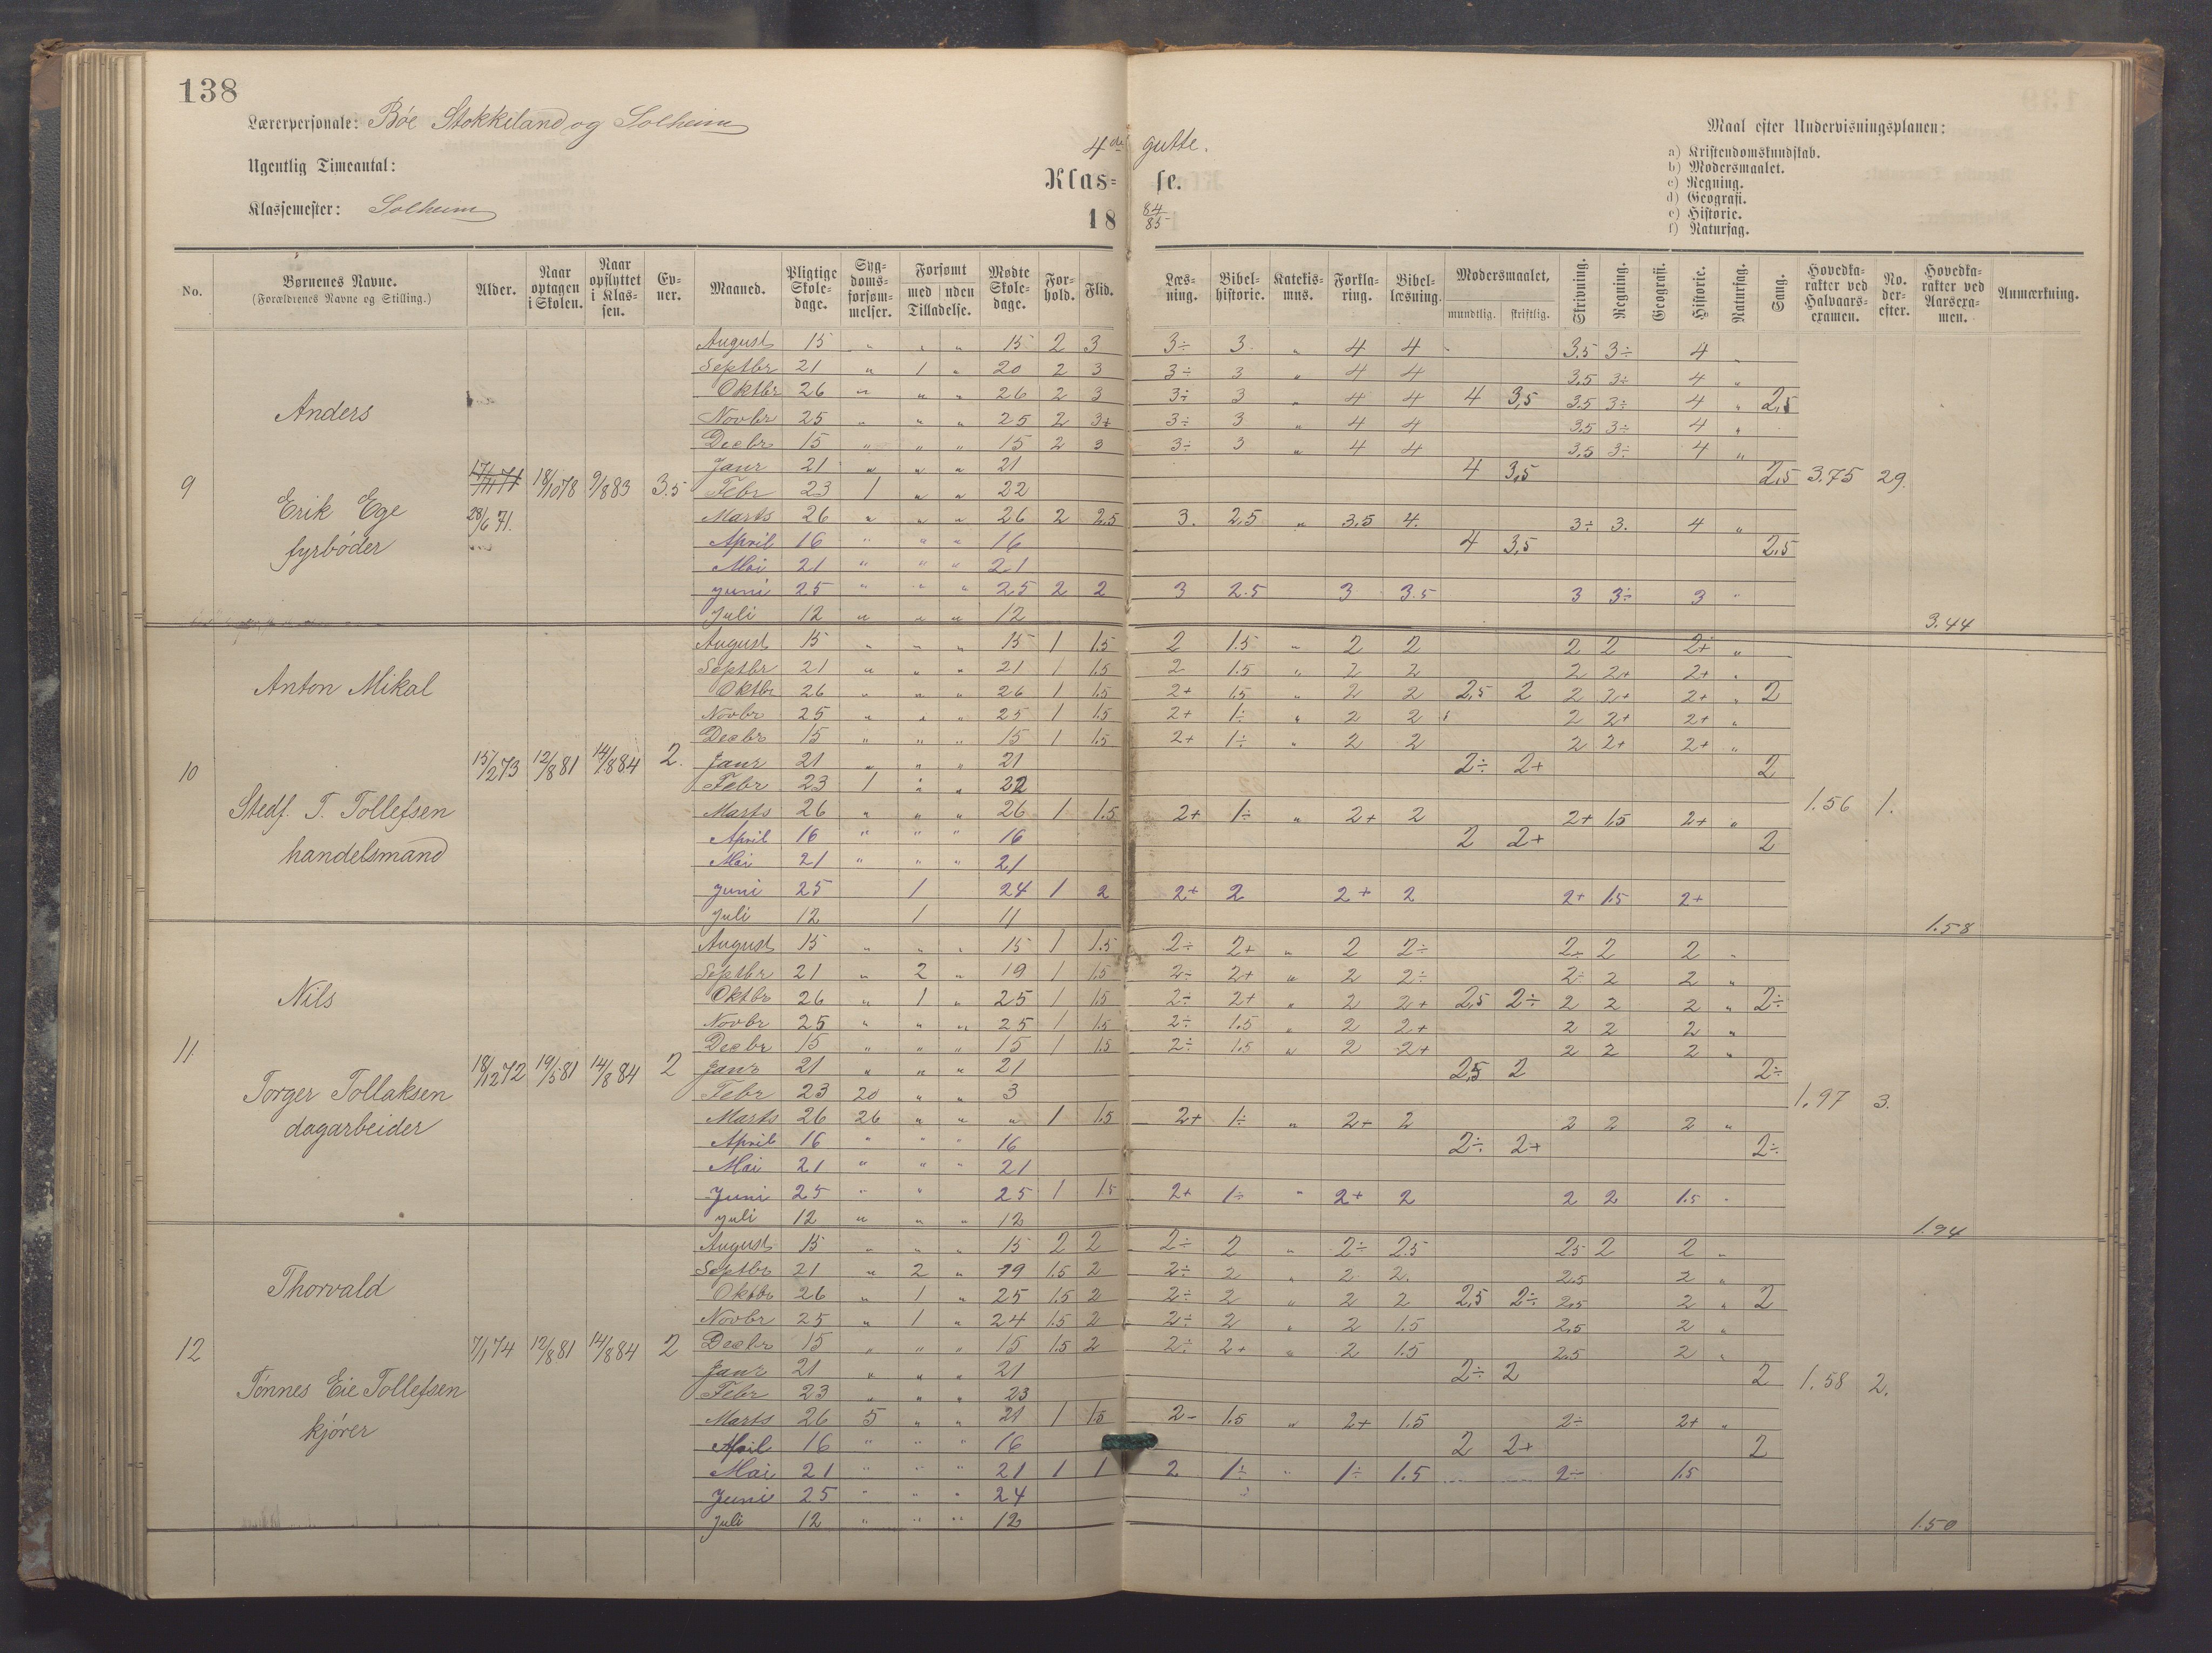 138
Lærerpersonale: Bóe Stokkeland og Solheim
Ugentlig Timeantal:
Klassemester: Solheim
4de gutte.
Klas- se.
18 84/85
Maal efter Undervisningsplanen:
a) Kristendomskundskab.
b) Modersmaalet.
c) Regning.
d) Geografi.
e) Historie.
f) Naturfag.
No. Børnenes Navne. (Forældrenes Navne og Stilling.) Alder. Naar optagen i Skolen. Naar opflyttet i Klassen. Evner. Maaned. Pligtige Skoledage. Sygdomsforsømmelser. Forsømt med uden Tilladelse. Mødte Skoledage. Forhold. Flid. Læsning. Bibelhistorie. Katekismus. Forklaring. Bibellæsning. Modersmaalet, mundtlig. skriftlig. Skrivning. Regning. Geografi. Historie. Naturfag. Sang. Hovedkarakter ved Halvaarsexamen. No. derefter. Hovedkarakter ved Aarsexamen. Anmærkning.
August 15 " " " 15 2 3 3÷ 3 " 4 4 3.5 3÷ 4 "
Septbr 21 " 1 " 20 2 3 3÷ 3 " 4 4 3.5 3÷ 4 "
Anders Oktbr 26 " " " 26 2 3 3÷ 3 " 4 4 4 3,5 3.5 3÷ 4 " 2,5
Novbr 25 " " " 25 2 3+ 3÷ 3 " 4 4 3.5 3÷ 4 "
Decbr 15 " " " 15 2 3 3÷ 3 " 4 4 3.5 3÷ 4 "
Janr 21 " " " 21 4 3,5 2,5
9 17/11 71 18/10 78 9/8 83 3.5 Febr 23 1 " " 22 3.75 29.
Erik Ege 28/6 71. Marts 26 " " " 26 2 2.5 3. 2.5 " 3.5 4. 3÷ 3. 4 "
fyrbóder April 16 " " " 16 4 3,5 2.5
Mai 21 " " " 21
Juni 25 " " " 25 2 2 3 2.5 3 3.5 3 3÷ 3 "
Juli 12 " " " 12 3.44
August 15 " " " 15 1 1.5 2 1.5 " 2 2 2 2 2+ "
Septbr 21 " " " 21 1 1.5 2 1.5 " 2 2 2 2+ 2+ "
Anton Mikal Oktbr 26 " " " 26 1 1.5 2+ 1.5 " 2 2 2,5 2 2 2+ 2+ " 2
Novbr 25 " " " 25 1 1.5 2+ 1÷ " 2 2 2 2+ 2+ "
Decbr 15 " " " 15 1 1.5 2+ 1÷ " 2 2 2 2+ 2+ "
10 15/2 73 12/8 81 14/8 84 2. Janr 21 " " " 21 2÷ 2+ 2
Febr 23 1 " " 22
Stedf. T. Tollefsen Marts 26 " " " 26 1 1.5 2+ 1÷ " 2+ 2 2+ 1.5 2+ " 1.56 1.
April 16 " " " 16 2 2+ 2
handelsmand Mai 21 " " " 21
Juni 25 1 24 1 2 2+ 2 2+ 2 2+ 1.5 2+
Juli 12 1 11 1.58
August 15 " " " 15 1 1.5 2÷ 2+ " 2 2÷ 2÷ 2 2 "
Septbr 21 " 2 " 19 1 1.5 2÷ 2+ " 2 2÷ 2÷ 2 2 "
Nils Oktbr 26 " 1 " 25 1 1.5 2÷ 2+ " 2 2+ 2,5 2÷ 2 2 2 " 2÷
Novbr 25 " " " 25 1 1.5 2÷ 1.5 " 2 2+ 2 2 2 "
11. Decbr 15 " " " 15 1 1.5 2÷ 1.5 " 2 2+ 2 2 2 "
18/12 72 19/5 81 14/8 84 2 Janr 21 " " " 21 2,5 2 2÷
Torger Tollaksen Febr 23 20 " " 3 1.97 3.
dagarbeider Marts 26 26 " " " 1 1.5 2+ 1÷ " 2+ 2 2 2 2 "
April 16 " " " 16 2÷ 2+ 2÷
Mai 21 " " 21
Juni 25 " " 25 1 1.5 2+ 1÷ " 2+ 2 2 2 1.5 "
Juli 12 " " " 12 1.94
August 15 " " " 15 2 2 2÷ 2 " 2÷ 2.5 2.5 2 2 "
Septbr 21 " 2 " 19 1.5 2 2÷ 2 " 2 2. 2.5 2 "
Thorvald Oktbr 26 " 1 " 25 1.5 2 2÷ 2 " 2 2 2,5 2÷ 2.5 2 " 2
Novbr 25 " 1 " 24 1.5 2 2÷ 2 " 2 1.5 2.5 2 "
12 7/1 74 12/8 81 14/8 84 2 Decbr 15 " " " 15 1.5 2 2÷ 2+ " 2 1.5 2.5 2 "
Janr 21 " " " 21 2÷ 2 2
Tónnes Eie Tollefsen Febr 23 " " " 23 1.58 2.
kjórer Marts 26 5 " " 21 1 1.5 2- 1.5 " 2+ 1.5 2÷ 2+ "
April 16 " " " 16 2 2+ 2
Mai 21 " " " 21 1 1 2 1÷ " 1÷ 1.5 2÷ 1.5
Juni 25 " " " 24
Juli 12 " " " 12 1.50